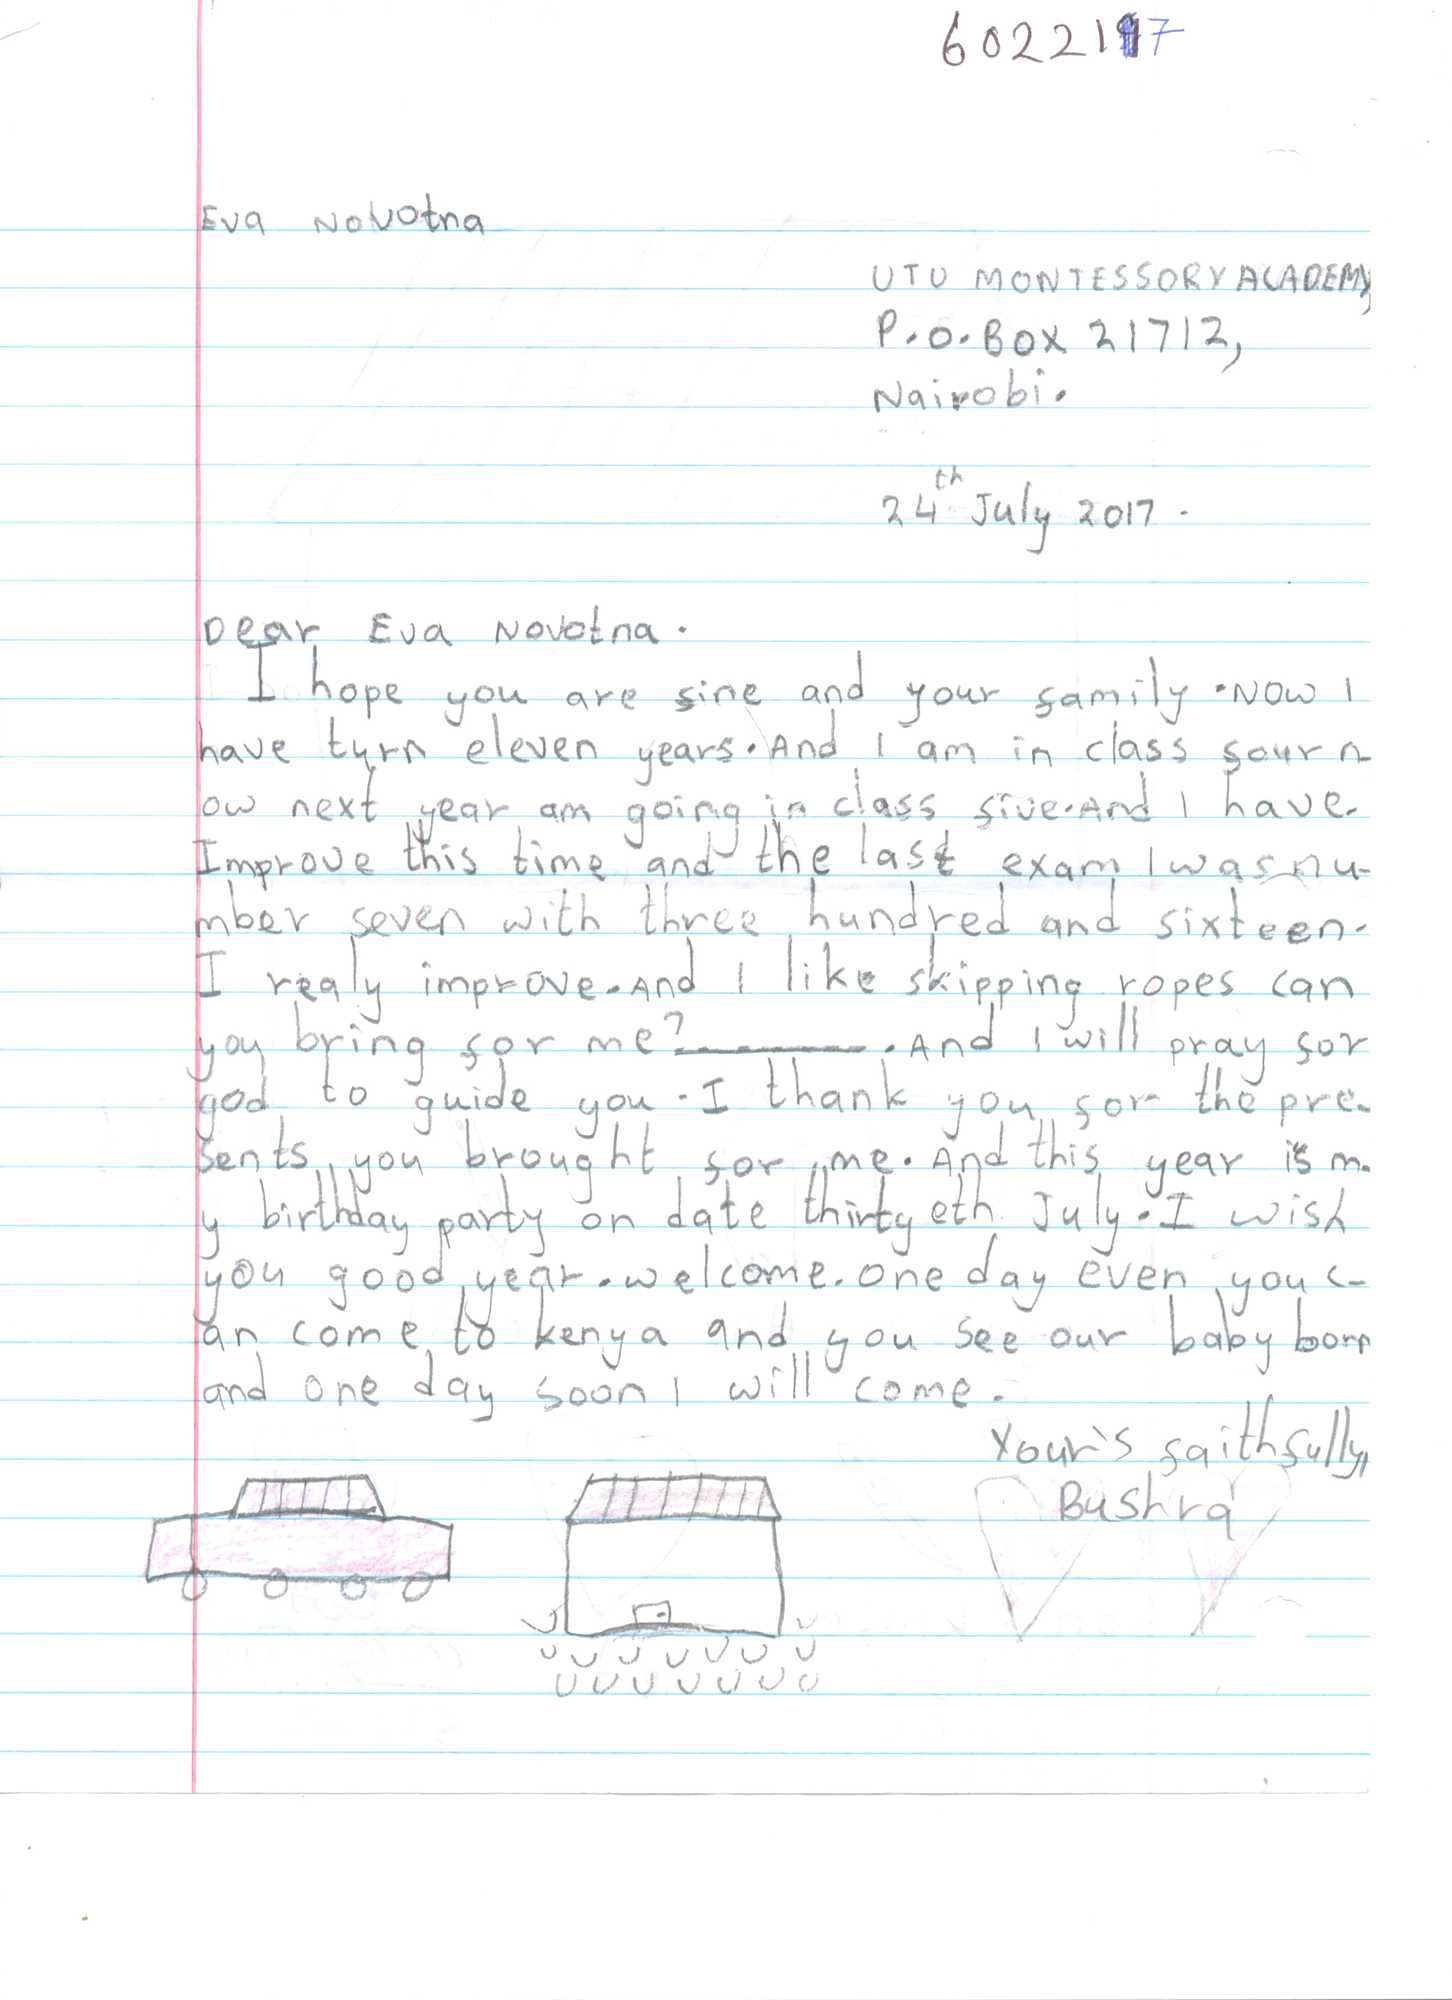 6022117
Eva Novotna
UTU MONTESSORY ACADEMY
P.O.BOX 21712,
Nairobi.
24th July 2017.
Dear Eva Novotna.
I hope you are fine and your family. Now I
have turn eleven years. And I am in class four n
ow next year am going in class five. And I have.
Improve this time and the last exam I was nu-
mber seven with three hundred and sixteen.
I realy improve. And I like skipping ropes can
you bring for me? ________. And I will pray for
god to guide you. I thank you for the pre-
sents you brought for me. And this year is m-
y birthday party on date thirtyeth July. I wish
you good year. welcome. One day even you c-
an come to kenya and you see our baby born
and one day soon I will come.
Your's faithfully,
Bushra